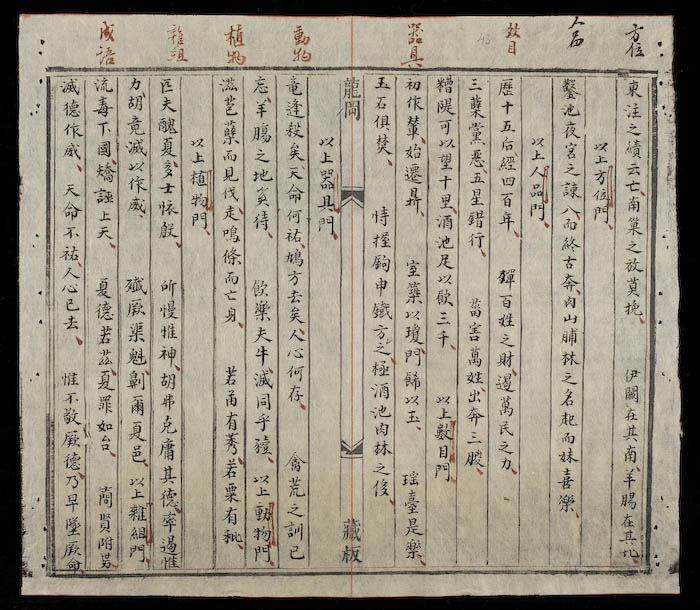 方位
人品
數目
器具
動物
植物
雜組
成語
東注之績云亡南巢之放莫挽 伊闕在其南羊腸在其北
以上方位門
鑿池夜宮之諫八而終古奔肉山脯林之名起而妹喜樂
以上人品門
歷十五后經四百年 殫百姓之財遏萬民之力
三蘖黨惡五星錯行 葘害萬姓出奔三朡
糟隄可以望十里酒池足以飲三千 以上數目門
初作輦始遷鼎 室築以瓊門歸以玉 瑤臺是樂
玉石俱焚 恃握鉤申鐵之極酒池肉林之侈
龍岡 藏板
以上器具門
竜逢殺矣天命何祐鳩方去矣人心何存 禽荒之訓已
忘羊腸之地莫待 飲樂夫牛滅同乎豷 以上動物門
滋苞蘖而見伐走鳴條而亡身 若苗有莠若粟有秕
以上植物門
匹夫醜夏多士怀殷 所慢惟神胡弗克庸其德率遏惟
力胡竟滅以作威 殲厥渠魁劓爾夏邑 以上雜組門
流毒下國矯誣上天 夏德若茲夏罪如台 簡賢附势
滅德作威 天命不祐人心已去 惟不敬厥德乃早墜厥命